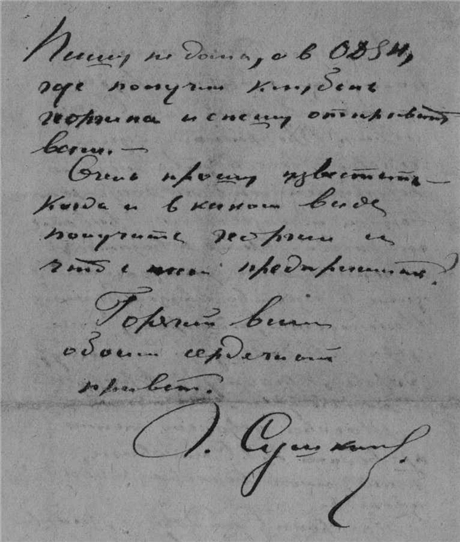 Пишу не дома, а в ОДЗН,
где получил клубень
георгина и спешу отправить
вам. —
Очень прошу известить —
когда и в каком виде
получите георгин и
что с ней предпримите.
Горячий вам
обоим сердечный
привет.